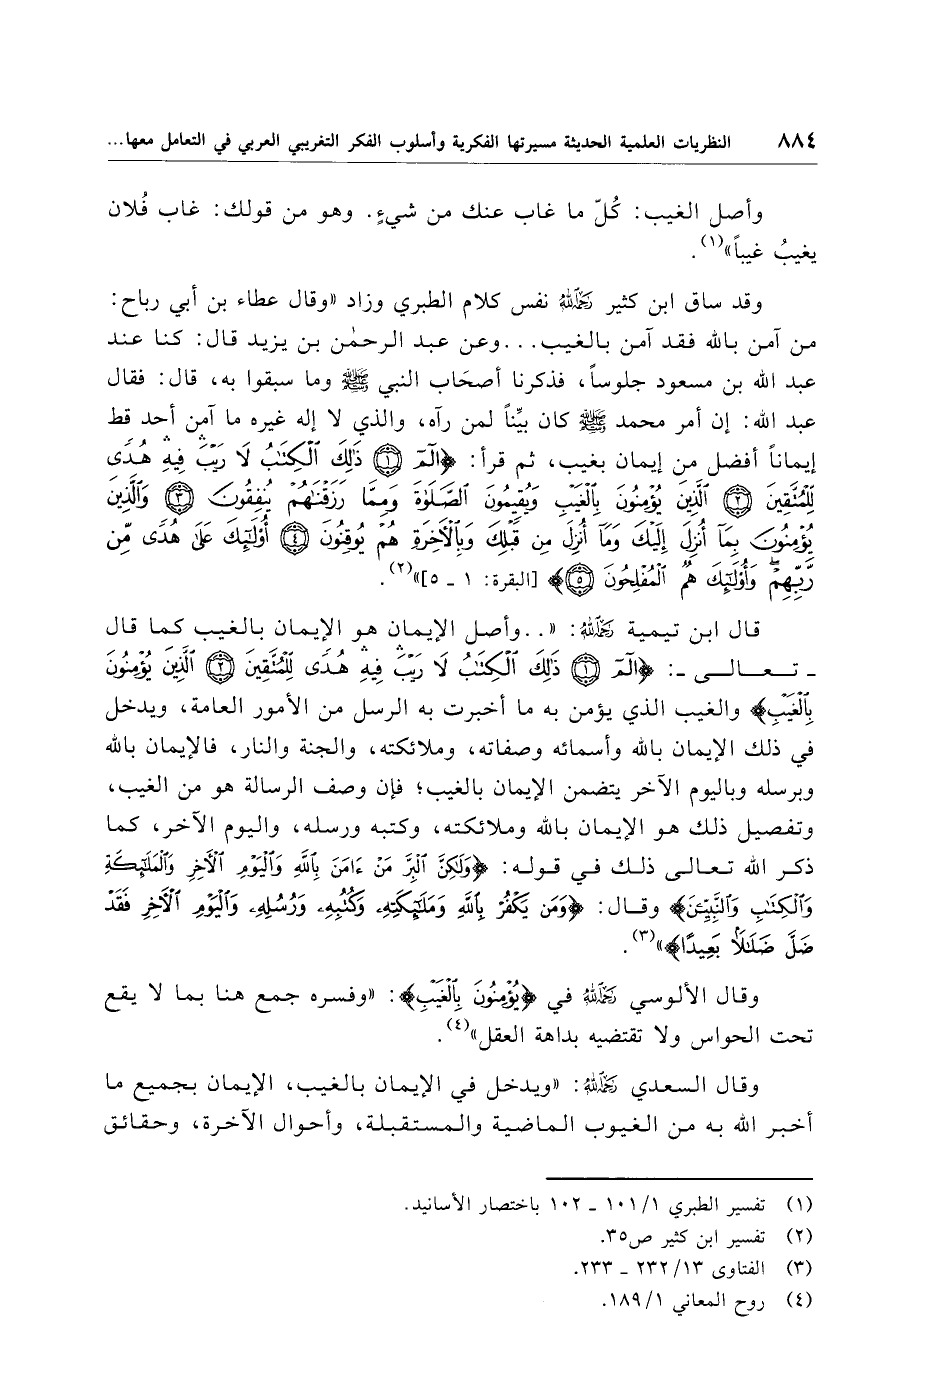 ٨٨٤ النظريات العلمية الحديثة مسيرتها الفكرية وأسلوب الفكر التغريبي العربي في التعامل معها...
وأصل الغيب: كُلّ ما غاب عنك من شيءٍ. وهو من قولك: غاب فُلان
يغيبُ غيباً»(١).
وقد ساق ابن كثير رَحِمَهُ اللهُ نفس كلام الطبري وزاد «وقال عطاء بن أبي رباح:
من آمن بالله فقد آمن بالغيب...وعن عبد الرحمٰن بن يزيد قال: كنا عند
عبد الله بن مسعود جلوساً، فذكرنا أصحَاب النبي ﷺ وما سبقوا به، قال: فقال
عبد الله: إن أمر محمد ﷺ كان بيِّناً لمن رآه، والذي لا إله غيره ما آمن أحد قط
إيماناً أفضل من إيمان بغيب، ثم قرأ: ﴿الٓمٓ ۝١ ذَٰلِكَ ٱلْكِتَٰبُ لَا رَيْبَ ۛ فِيهِ ۛ هُدًى
لِّلْمُتَّقِينَ ۝٢ ٱلَّذِينَ يُؤْمِنُونَ بِٱلْغَيْبِ وَيُقِيمُونَ ٱلصَّلَوٰةَ وَمِمَّا رَزَقْنَٰهُمْ يُنفِقُونَ ۝٣ وَٱلَّذِينَ
يُؤْمِنُونَ بِمَآ أُنزِلَ إِلَيْكَ وَمَآ أُنزِلَ مِن قَبْلِكَ وَبِٱلْءَاخِرَةِ هُمْ يُوقِنُونَ ۝٤ أُو۟لَٰٓئِكَ عَلَىٰ هُدًى مِّن
رَّبِّهِمْ ۖ وَأُو۟لَٰٓئِكَ هُمُ ٱلْمُفْلِحُونَ ۝٥﴾ [البقرة: ١ ـ ٥]»(٢).
قال ابن تيمية رَحِمَهُ اللهُ: «..وأصل الإيمان هو الإيمان بالغيب كما قال
ـ تعالى ـ: ﴿الٓمٓ ۝١ ذَٰلِكَ ٱلْكِتَٰبُ لَا رَيْبَ ۛ فِيهِ ۛ هُدًى لِّلْمُتَّقِينَ ۝٢ ٱلَّذِينَ يُؤْمِنُونَ
بِٱلْغَيْبِ﴾ والغيب الذي يؤمن به ما أخبرت به الرسل من الأمور العامة، ويدخل
في ذلك الإيمان بالله وأسمائه وصفاته، وملائكته، والجنة والنار، فالإيمان بالله
وبرسله وباليوم الآخر يتضمن الإيمان بالغيب؛ فإن وصف الرسالة هو من الغيب،
وتفصيل ذلك هو الإيمان بالله وملائكته، وكتبه ورسله، واليوم الآخر، كما
ذكر الله تعالى ذلك في قوله: ﴿وَلَٰكِنَّ ٱلْبِرَّ مَنْ ءَامَنَ بِٱللَّهِ وَٱلْيَوْمِ ٱلْءَاخِرِ وَٱلْمَلَٰٓئِكَةِ
وَٱلْكِتَٰبِ وَٱلنَّبِيِّۦنَ﴾ وقال: ﴿وَمَن يَكْفُرْ بِٱللَّهِ وَمَلَٰٓئِكَتِهِۦ وَكُتُبِهِۦ وَرُسُلِهِۦ وَٱلْيَوْمِ ٱلْءَاخِرِ فَقَدْ
ضَلَّ ضَلَٰلًۢا بَعِيدًا﴾»(٣).
وقال الألوسي رَحِمَهُ اللهُ في ﴿يُؤْمِنُونَ بِٱلْغَيْبِ﴾: «وفسره جمع هنا بما لا يقع
تحت الحواس ولا تقتضيه بداهة العقل»(٤).
وقال السعدي رَحِمَهُ اللهُ: «ويدخل في الإيمان بالغيب، الإيمان بجميع ما
أخبر الله به من الغيوب الماضية والمستقبلة، وأحوال الآخرة، وحقائق
(١) تفسير الطبري ١٠١/١ ـ ١٠٢ باختصار الأسانيد.
(٢) تفسير ابن كثير ص٣٥.
(٣) الفتاوى ٢٣٢/١٣ ـ ٢٣٣.
(٤) روح المعاني ١٨٩/١.